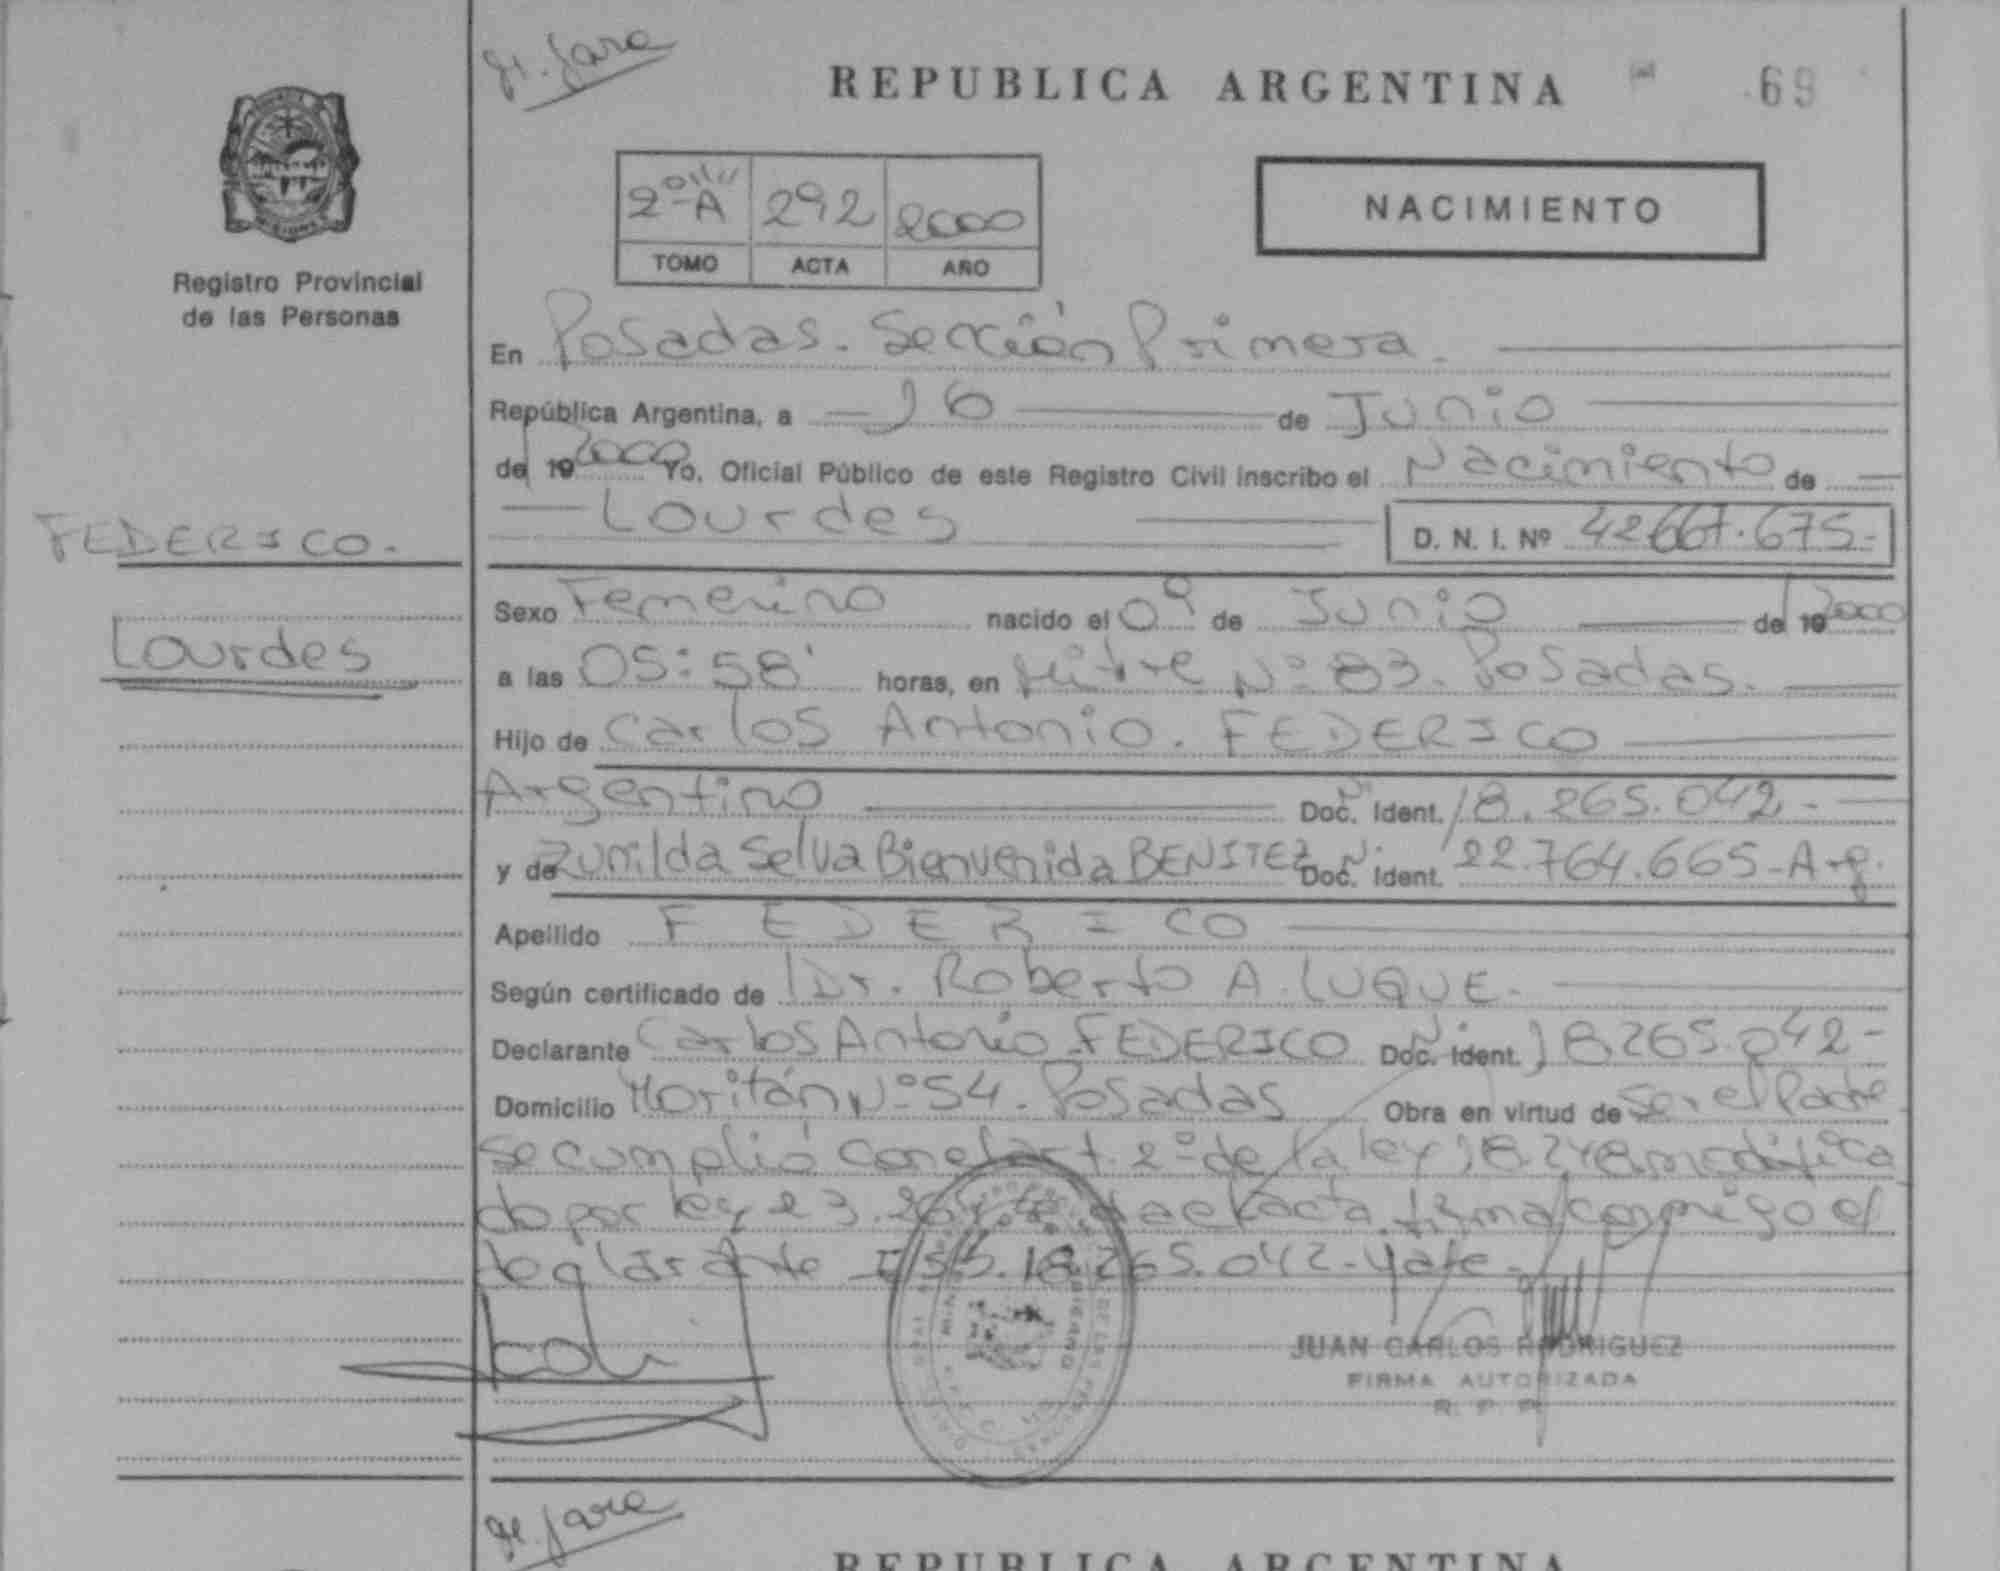 REPUBLICA ARGENTINA
69
2º A 292 2000
TOMO ACTA AÑO
NACIMIENTO
Registro Provincial
de las Personas
En Posadas. Sección Primera.
República Argentina, a 16 de Junio
de 19 2000 Yo, Oficial Público de este Registro Civil inscribo el Nacimiento de
Lourdes D. N. I. Nº 42667.675-
FEDERICO.
Lourdes
Sexo Femenino nacido el 09 de Junio de 19 2000
a las 05:58' horas, en Mitre Nº 83. Posadas.
Hijo de Carlos Antonio. FEDERICO
Argentino Doc. Ident. 18.265.042-
y de Zunilda Selva Bienvenida BENITEZ Doc. Ident. 22.764.665-Arg.
Apellido FEDERICO
Según certificado de Dr. Roberto A. LUQUE.
Declarante Carlos Antonio FEDERICO Doc. Ident. 18.265.042-
Domicilio Moritán Nº 54. Posadas Obra en virtud de Ser el Padre
se cumplió con el art. 2º de la ley 18.248 modifica
do por ley 23. acta firma conmigo el
declarante 18.265.042-
JUAN CARLOS RODRIGUEZ
FIRMA AUTORIZADA
R. P. P.
REPUBLICA ARGENTINA